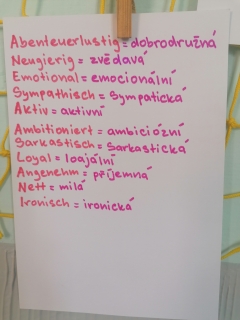 Abenteuerlustig = dobrodružná
Neugierig = zvědavá
Emotional = emocionální
Sympathisch = sympatická
Aktiv = aktivní
Ambitioniert = ambiciózní
Sarkastisch = sarkastická
Loyal = loajální
Angenehm = příjemná
Nett = milá
Ironisch = ironická